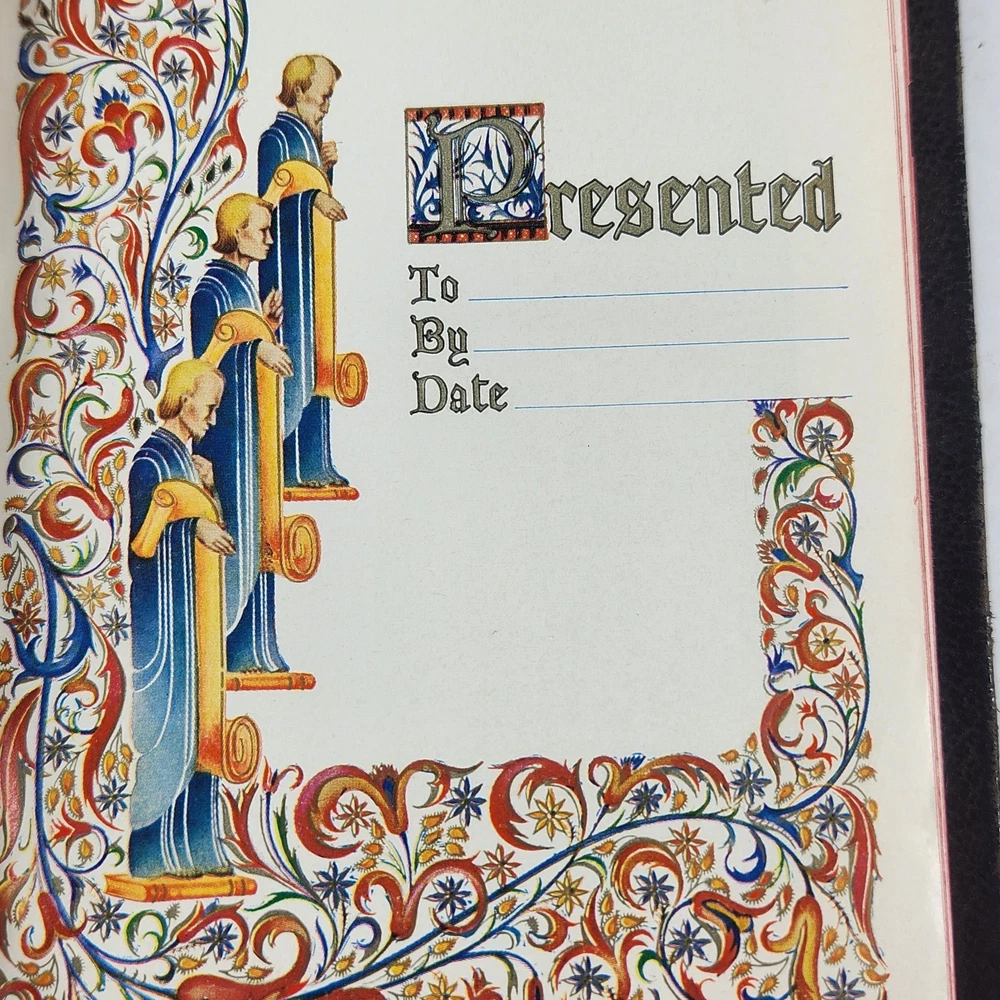 Presented
To
By
Date